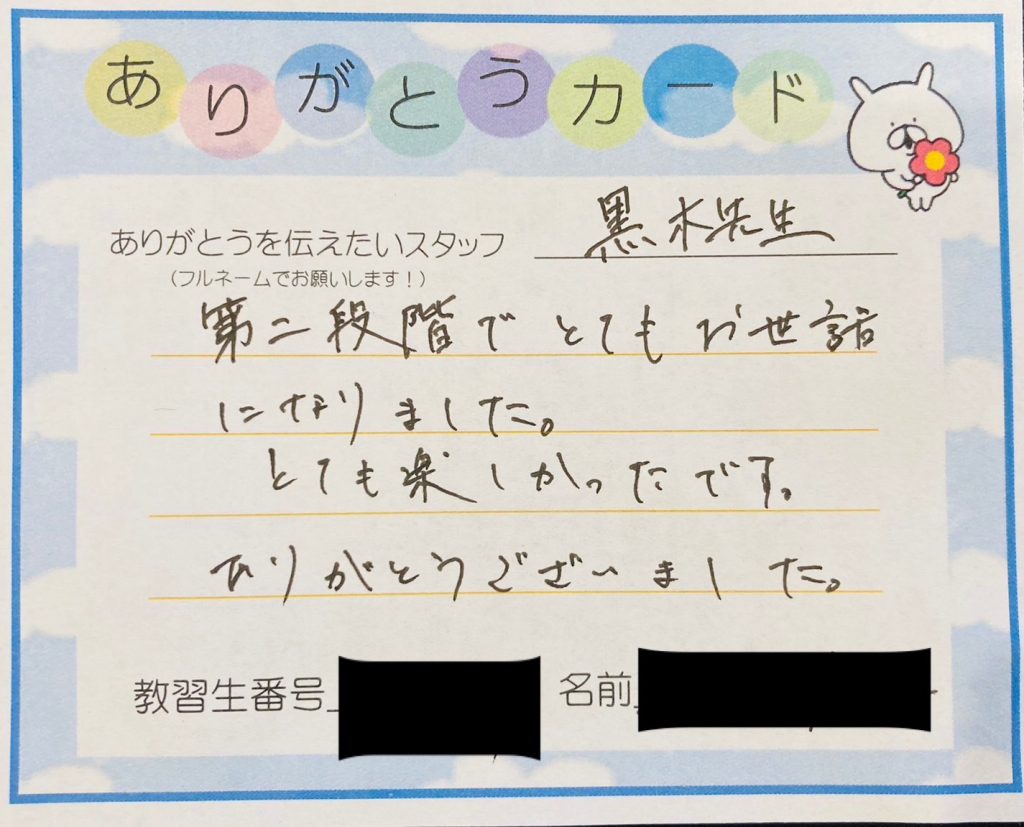 ありがとうカード
ありがとうを伝えたいスタッフ 黒木先生
(フルネームでお願いします!)
第二段階でとてもお世話
になりました。
とても楽しかったです。
ありがとうございました。
教習生番号 名前